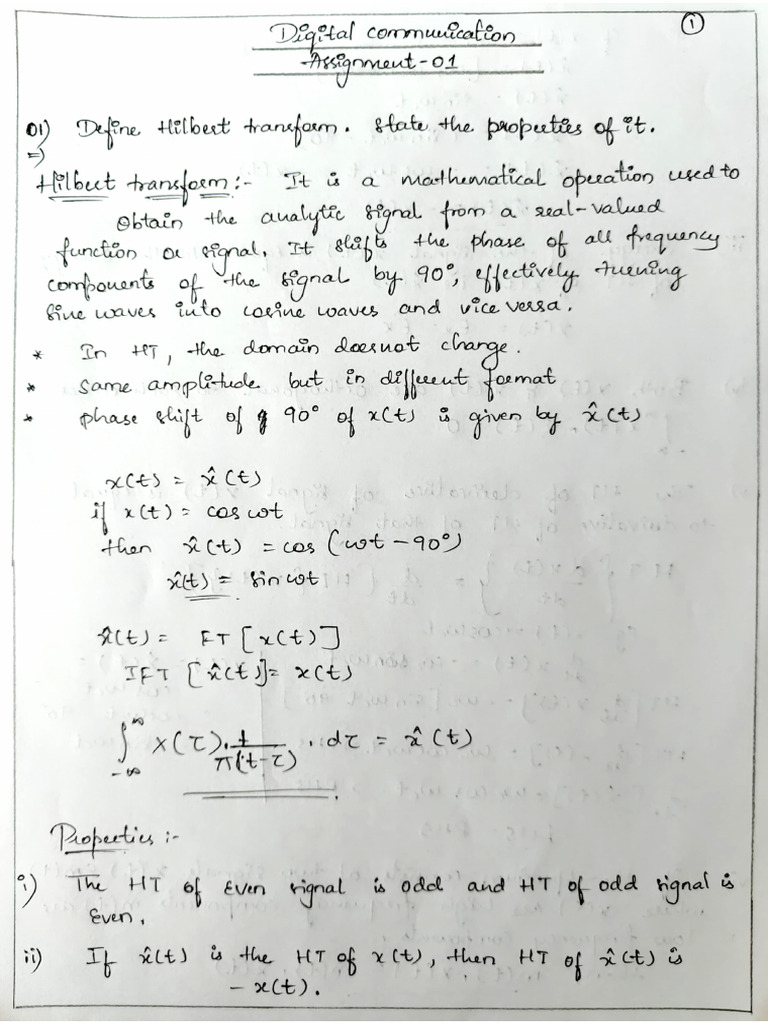 ①
Digital communication
Assignment-01
01) Define Hilbert transform. State the properties of it.
=)
Hilbert transform:- It is a mathematical operation used to
Obtain the analytic signal from a real-valued
function or signal. It shifts the phase of all frequency
components of the signal by 90°, effectively turning
Sine waves into cosine waves and vice versa.
* In HT, the domain doesnot change.
* Same amplitude but in different format
* phase shift of 90° of x(t) is given by x̂(t)
x(t) = x̂(t)
if x(t) = cos ωt
then x̂(t) = cos (ωt - 90°)
x̂(t) = sin ωt
x̂(t) = FT [x(t)]
IFT [x̂(t)] = x(t)
∫_{-∞}^{∞} x(τ) . 1/π(t-τ) . dτ = x̂(t)
Properties :-
i) The HT of Even signal is odd and HT of odd signal is
Even.
ii) If x̂(t) is the HT of x(t), then HT of x̂(t) is
- x(t).